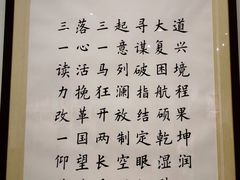 三落三起寻大道
一心一意谋复兴
读活马列破困境
力挽狂澜指航程
改革开放结硕果
一国两制定乾坤
仰望长空眼湿润